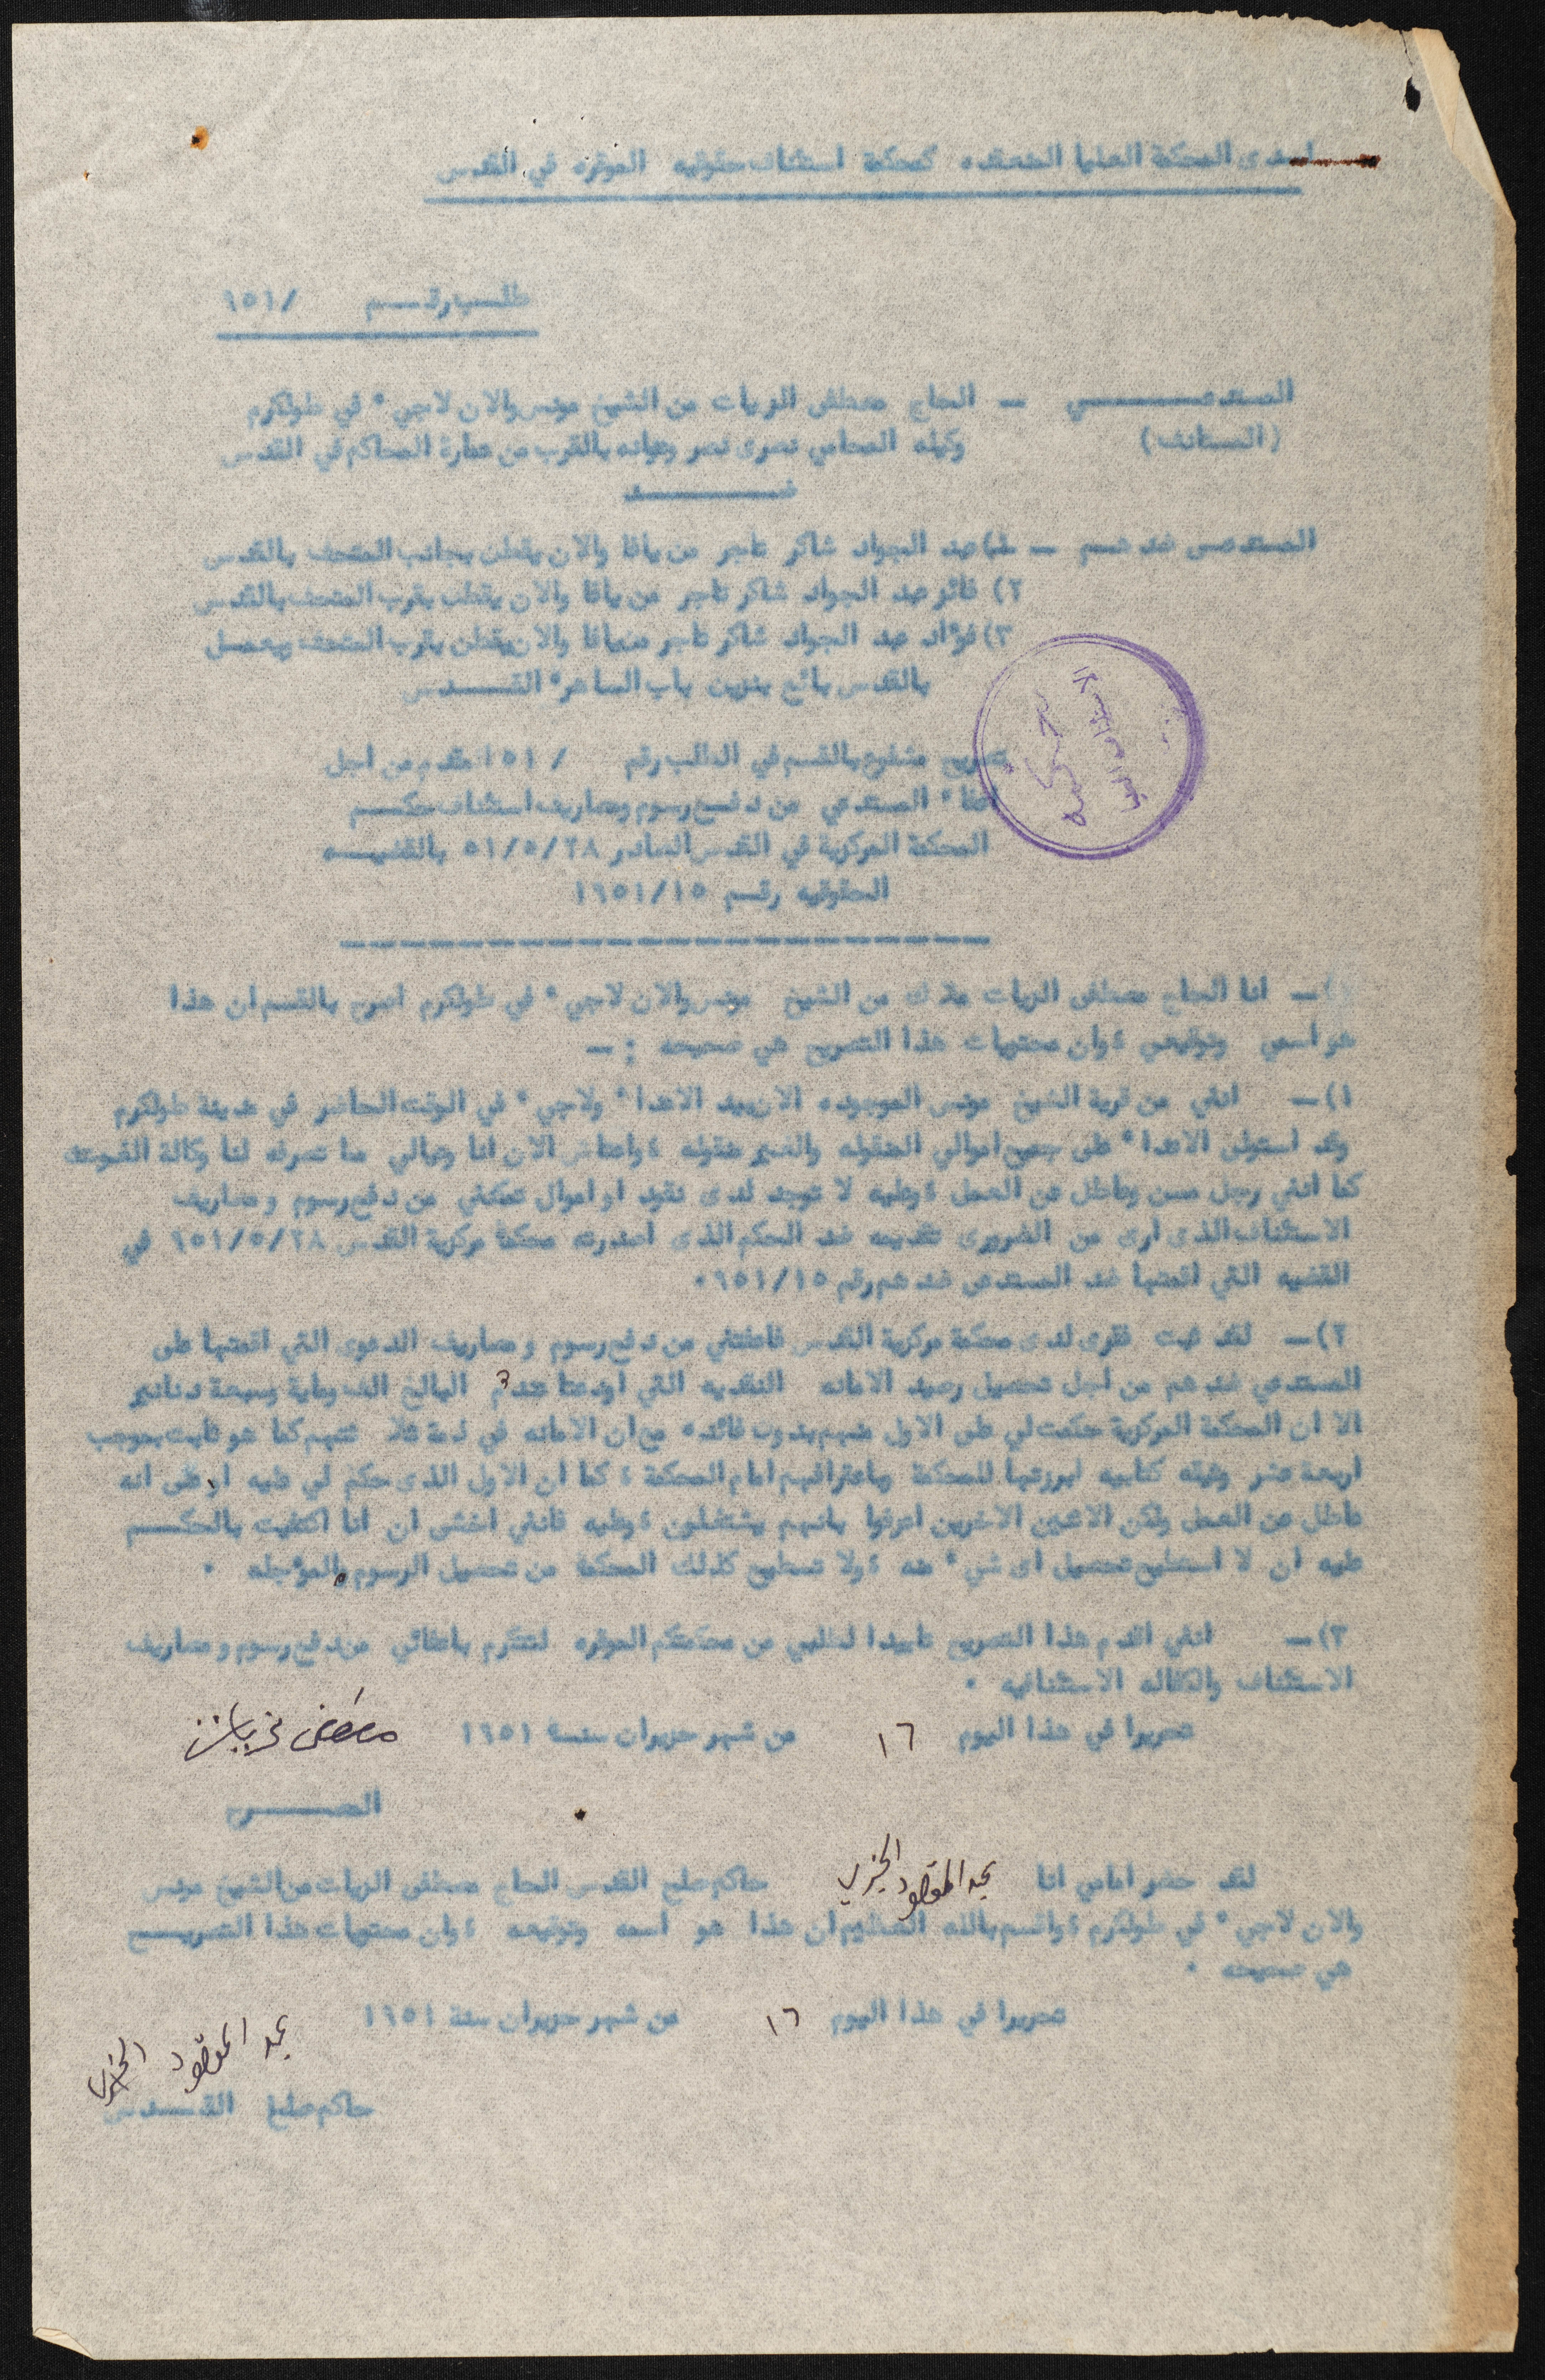 لدى المحكمة العليا المنعقده كمحكمة استئناف حقوقيه الموقره في القدس
طلب رقم /٩٥١
المستدعي — الحاج مصطفى الزيات من الشيخ مونس والان لاجيء في طولكرم
(المستانف) وكيله المحامي نصرى نصر وعنوانه بالقرب من عمارة المحاكم في القدس
ضد
المستدعى ضدهم — ١) عبد الجواد شاكر تاجر من يافا والان يقطن بجانب المتحف بالقدس
٢) فائز عبد الجواد شاكر تاجر من يافا والان يقطن بقرب المتحف بالقدس
٣) فؤاد عبد الجواد شاكر تاجر من يافا والان يقطن بقرب المتحف ويعمل
بالقدس بائع بنزين باب الساهره القدس
محكمة الاستئناف العليا
تصريح مشفوع بالقسم في الطلب رقم / ٩٥١ مقدم من اجل
اعفاء المستدعي من دفع رسوم ومصاريف استئناف حكم
المحكمة المركزية في القدس الصادر ٢٨/٥/٥١ بالقضيه
الحقوقيه رقم ١٥/١٩٥١
— انا الحاج مصطفى الزيات ملاك من الشيخ مونس والان لاجيء في طولكرم اصرح بالقسم ان هذا
هو اسمي وتوقيعي ، وان محتويات هذا التصريح هي صحيحه :—
١)— انني من قرية الشيخ مونس الموجوده الان بيد الاعداء ولاجيء في الوقت الحاضر في مدينة طولكرم
وقد استولى الاعداء على جميع اموالي المنقوله والغير منقوله ، واعتاش الان انا وعيالي مما تصرفه لنا وكالة الغوث
كما انني رجل مسن وعاطل عن العمل ، وعليه لا توجد لدى نقود او اموال تمكنني من دفع رسوم ومصاريف
الاستئناف الذى ارى من الضرورى تقديمه ضد الحكم الذى اصدرته محكمة مركزية القدس ٢٨/٥/٩٥١ في
القضيه التي اقمتها ضد المستدعى ضدهم رقم ١٥/٩٥١ .
٢)— لقد ثبت فقرى لدى محكمة مركزية القدس فاعفتني من دفع رسوم ومصاريف الدعوى التي اقمتها على
المستدعي ضدهم من اجل تحصيل رصيد الامانه النقديه التي اودعتها عندهم البالغ الف وماية وسبعة دنانير
الا ان المحكمة المركزية حكمت لي على الاول منهم بدون فائده مع ان الامانه في ذمة ثلاثتهم كما هو ثابت بموجب
اربعة عشر وثيقه كتابيه ابرزتها للمحكمة وباعترافهم امام المحكمة ، كما ان الاول الذى حكم لي عليه ادعى انه
عاطل عن العمل ولكن الاثنين الاخرين اعترفوا بانهم يشتغلون ، وعليه فانني اخشى ان انا اكتفيت بالحكم
عليه ان لا استطيع تحصيل اى شيء منه ، ولا تستطيع كذلك المحكمة من تحصيل الرسوم المؤجله .
٣)— انني اقدم هذا التصريح تاييدا لطلبي من محكمتكم الموقره لتتكرم باعفائي من دفع رسوم ومصاريف
الاستئناف والكفاله الاستئنافيه .
تحريرا في هذا اليوم ١٦ من شهر حزيران سنة ١٩٥١ مصطفى الزيات
المصرح
لقد حضر امامي انا عبد المقصود الخيري حاكم صلح القدس الحاج مصطفى الزيات من الشيخ مونس
والان لاجيء في طولكرم ، واقسم بالله العظيم ان هذا هو اسمه وتوقيعه ، وان محتويات هذا التصريح
هي صحيحه .
تحريرا في هذا اليوم ١٦ من شهر حزيران سنة ١٩٥١
عبد المقصود الخيري
حاكم صلح القدس